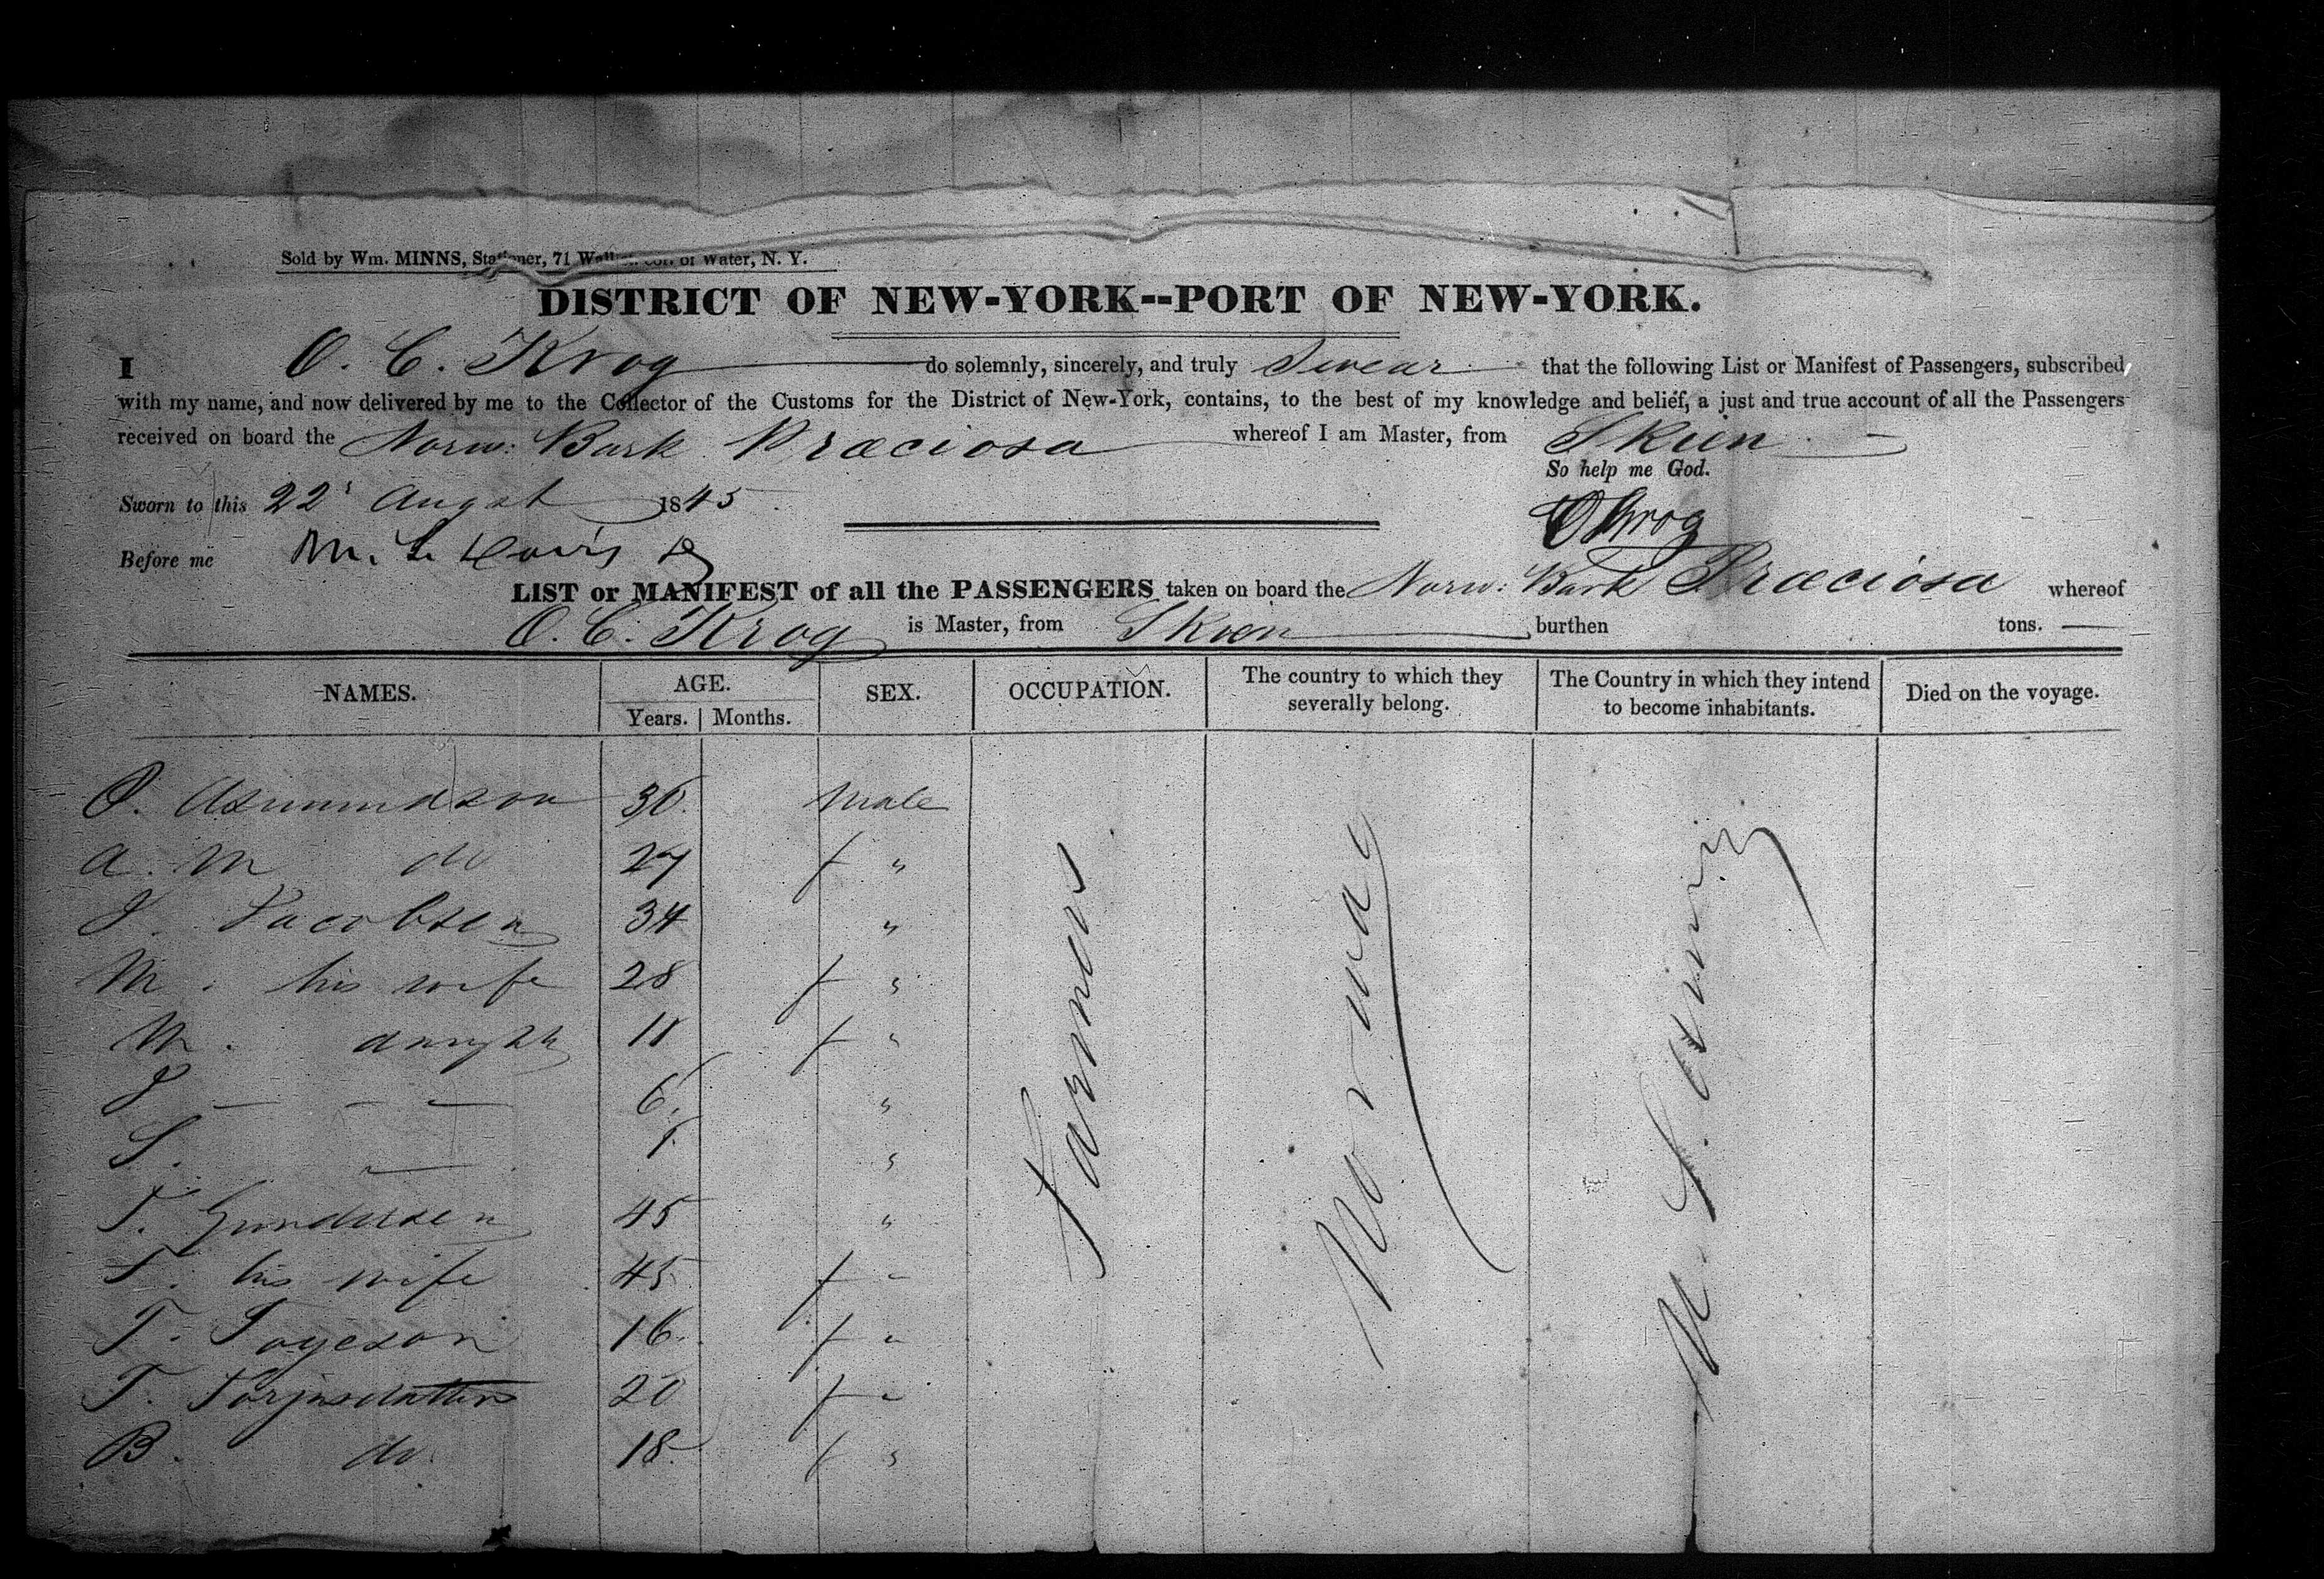 Sold by Wm. MINNS, Stationer, 71 Wall-st. cor. of Water, N. Y.
DISTRICT OF NEW-YORK--PORT OF NEW-YORK.
I O. C. Krog do solemnly, sincerely, and truly Swear that the following List or Manifest of Passengers, subscribed
with my name, and now delivered by me to the Collector of the Customs for the District of New-York, contains, to the best of my knowledge and belief, a just and true account of all the Passengers
received on board the Norw: Bark Præciosa whereof I am Master, from Skien
So help me God.
Sworn to this 22 August 1845
O Krog
Before me M. L. Davis
LIST or MANIFEST of all the PASSENGERS taken on board the Norw: Bark Præciosa whereof
O. C. Krog is Master, from Skien burthen tons.
NAMES. AGE. SEX. OCCUPATION. The country to which they severally belong. The Country in which they intend to become inhabitants. Died on the voyage.
Years. Months.
O. Asmundson 36. Male
A. M do 27 f "
J. Jacobsen 34 "
M. his wife 28 f "
M. daughtr 11 f "
J — — — 6. "
S. — "
T. Gundersen 45 "
T. his wife 45 f "
T. 16. f "
T. Torjusdatter 20 f "
B. do. 18. f "
Farmers
Norway
N. S. America